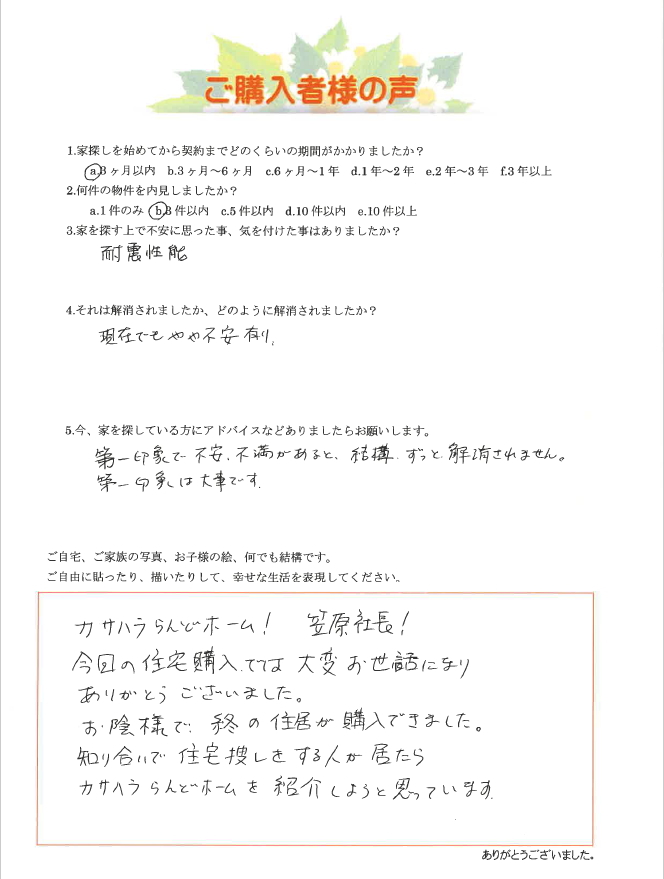 ご購入者様の声
1.家探しを始めてから契約までどのくらいの期間がかかりましたか？
a.3ヶ月以内 b.3ヶ月～6ヶ月 c.6ヶ月～1年 d.1年～2年 e.2年～3年 f.3年以上
2.何件の物件を内見しましたか？
a.1件のみ b.3件以内 c.5件以内 d.10件以内 e.10件以上
3.家を探す上で不安に思った事、気を付けた事はありましたか？
耐震性能
4.それは解消されましたか、どのように解消されましたか？
現在でもやや不安有り、
5.今、家を探している方にアドバイスなどありましたらお願いします。
第一印象で不安、不満があると、結構、ずっと解消されません。
第一印象は大事です。
ご自宅、ご家族の写真、お子様の絵、何でも結構です。
ご自由に貼ったり、描いたりして、幸せな生活を表現してください。
カサハラらんどホーム！ 笠原社長！
今回の住宅購入では大変お世話になり
ありがとうございました。
お陰様で、終の住居が購入できました。
知り合いで住宅捜しをする人が居たら
カサハラらんどホームを紹介しようと思っています。
ありがとうございました。